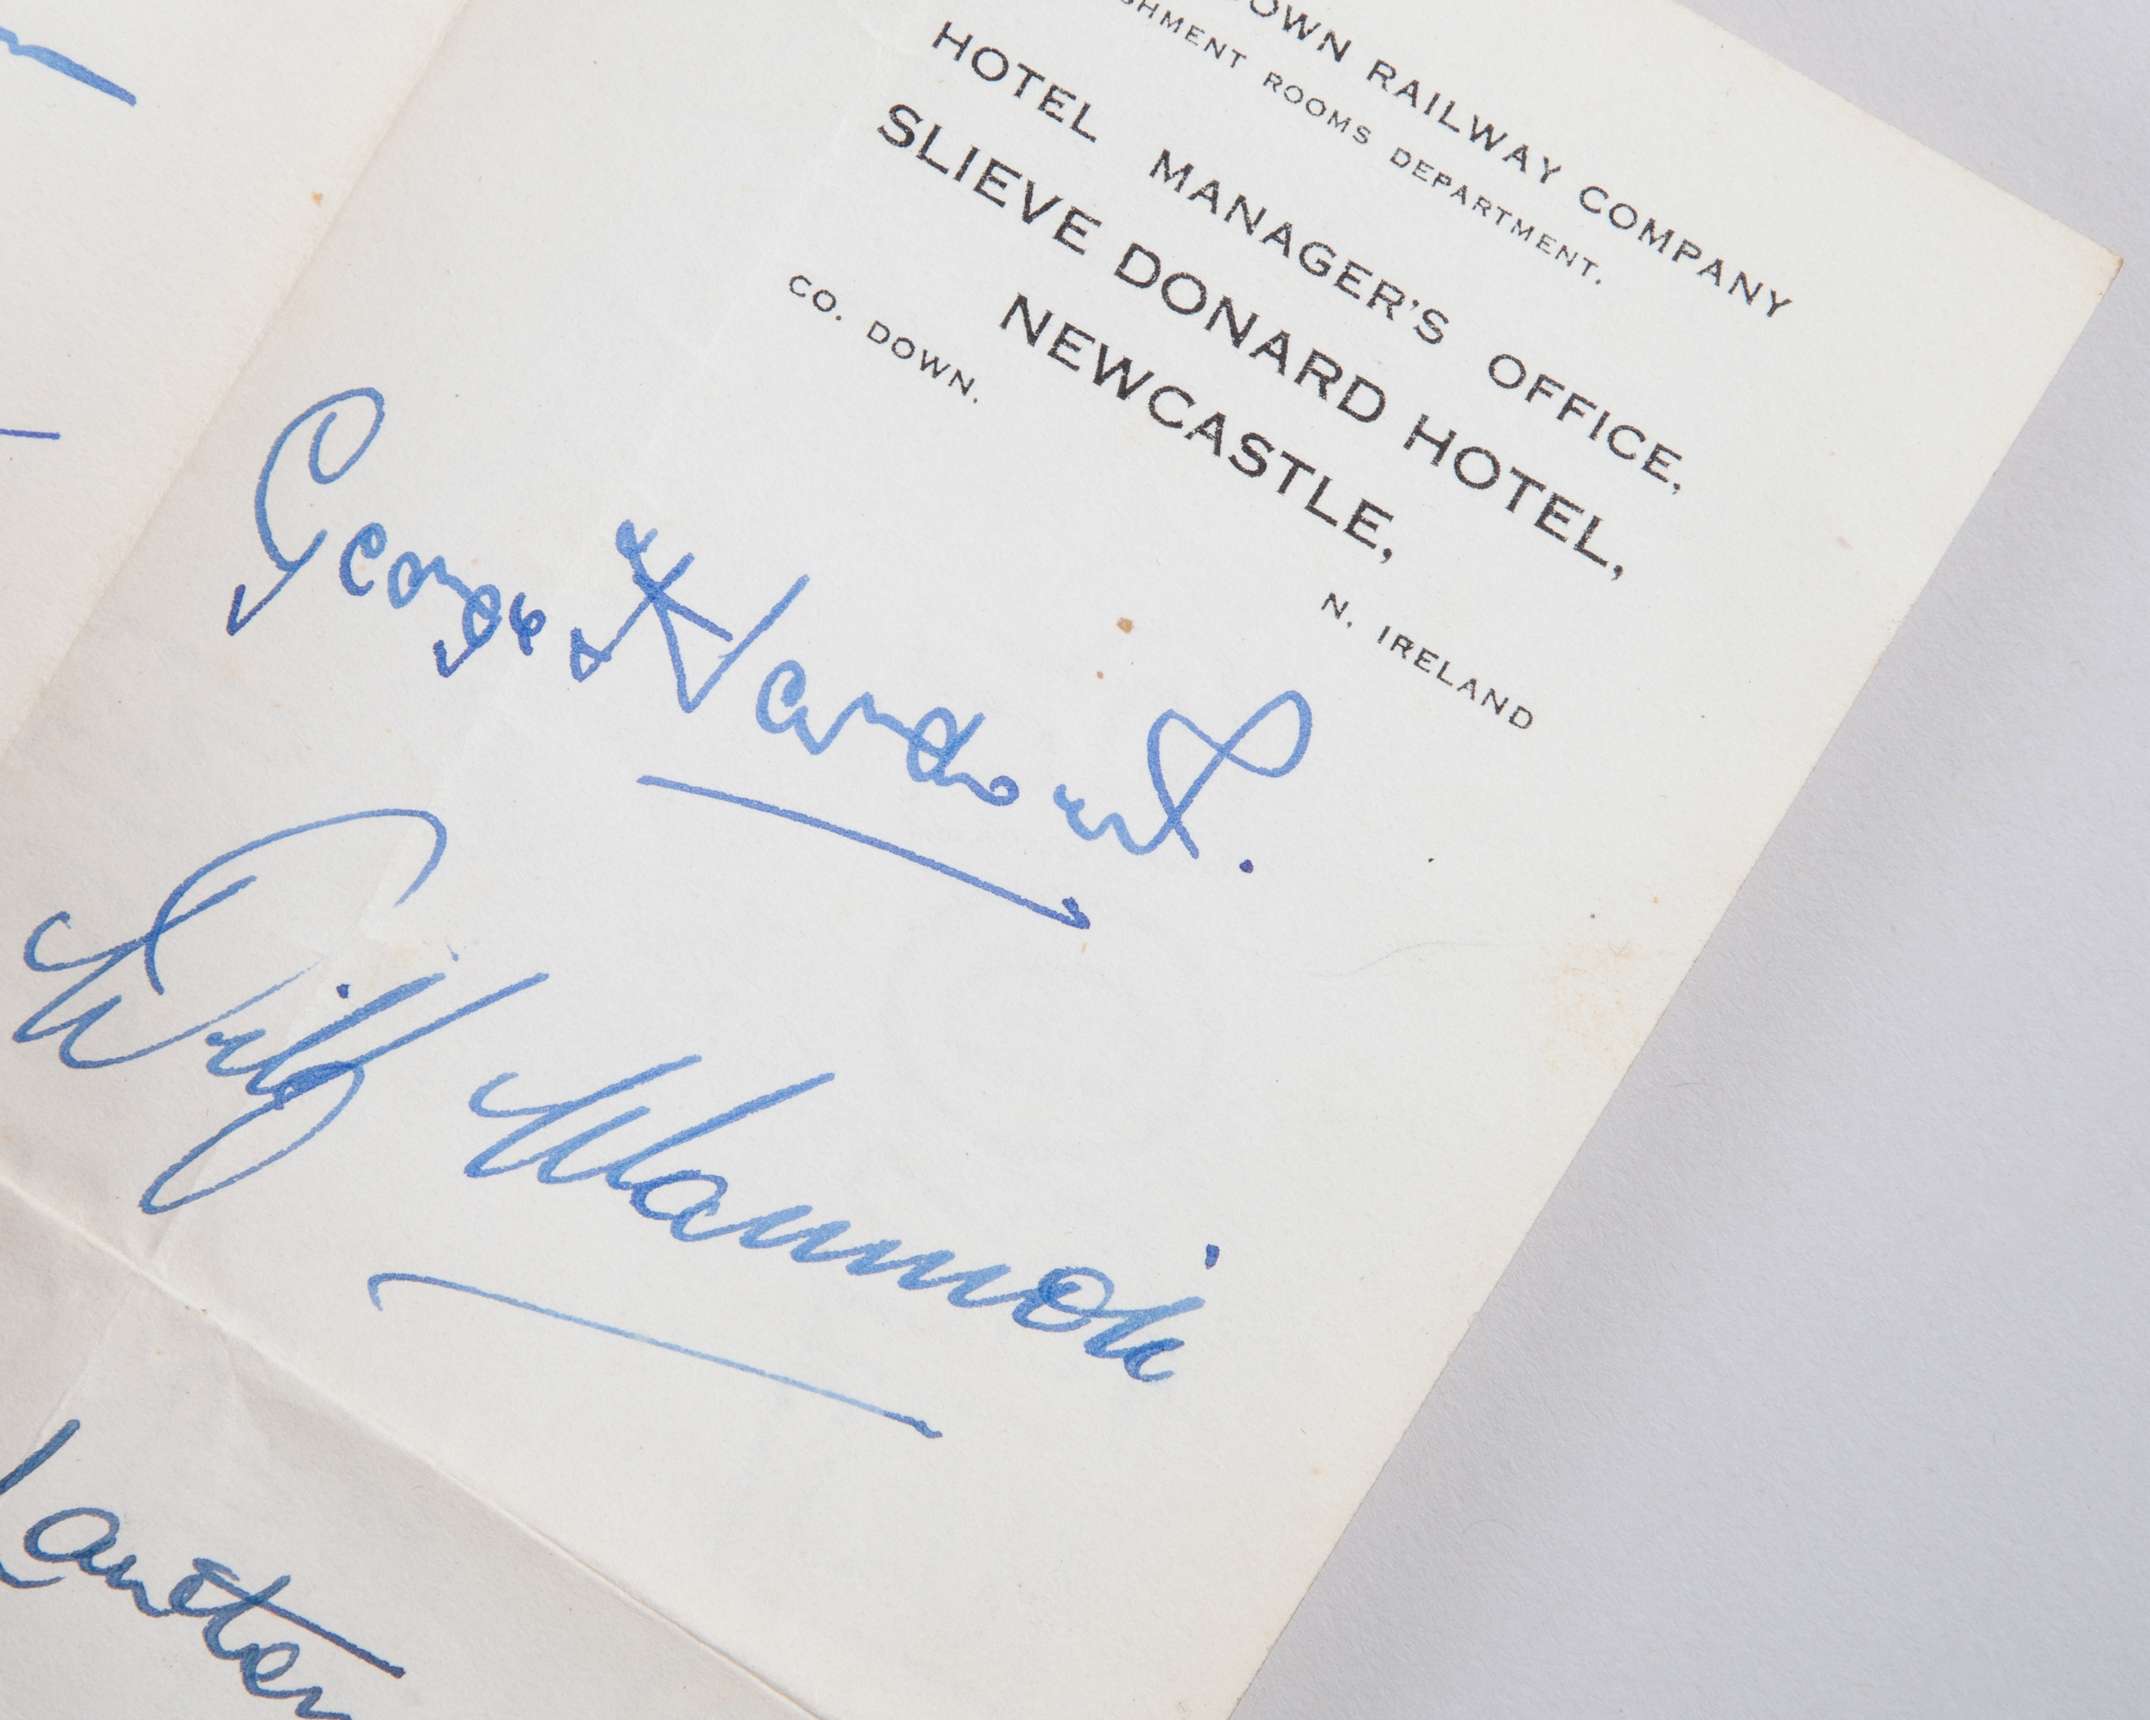 DOWN RAILWAY COMPANY
ROOMS DEPARTMENT.
HOTEL MANAGER'S OFFICE,
SLIEVE DONARD HOTEL,
NEWCASTLE,
CO. DOWN.
N. IRELAND
George Hardwick.
Wilf Mannion